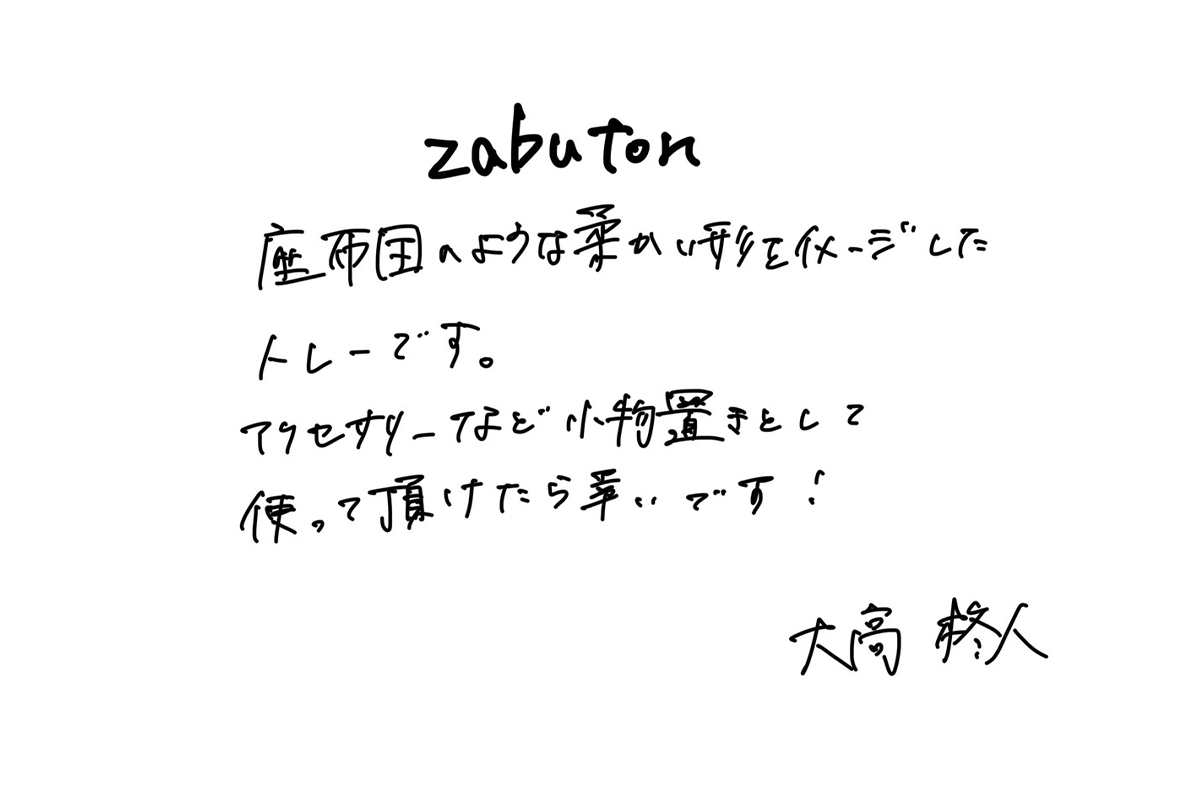 zabuton
座布団のような柔かい形をイメージした
トレーです。
アクセサリーなど小物置きとして
使って頂けたら幸いです!
大高 柊人